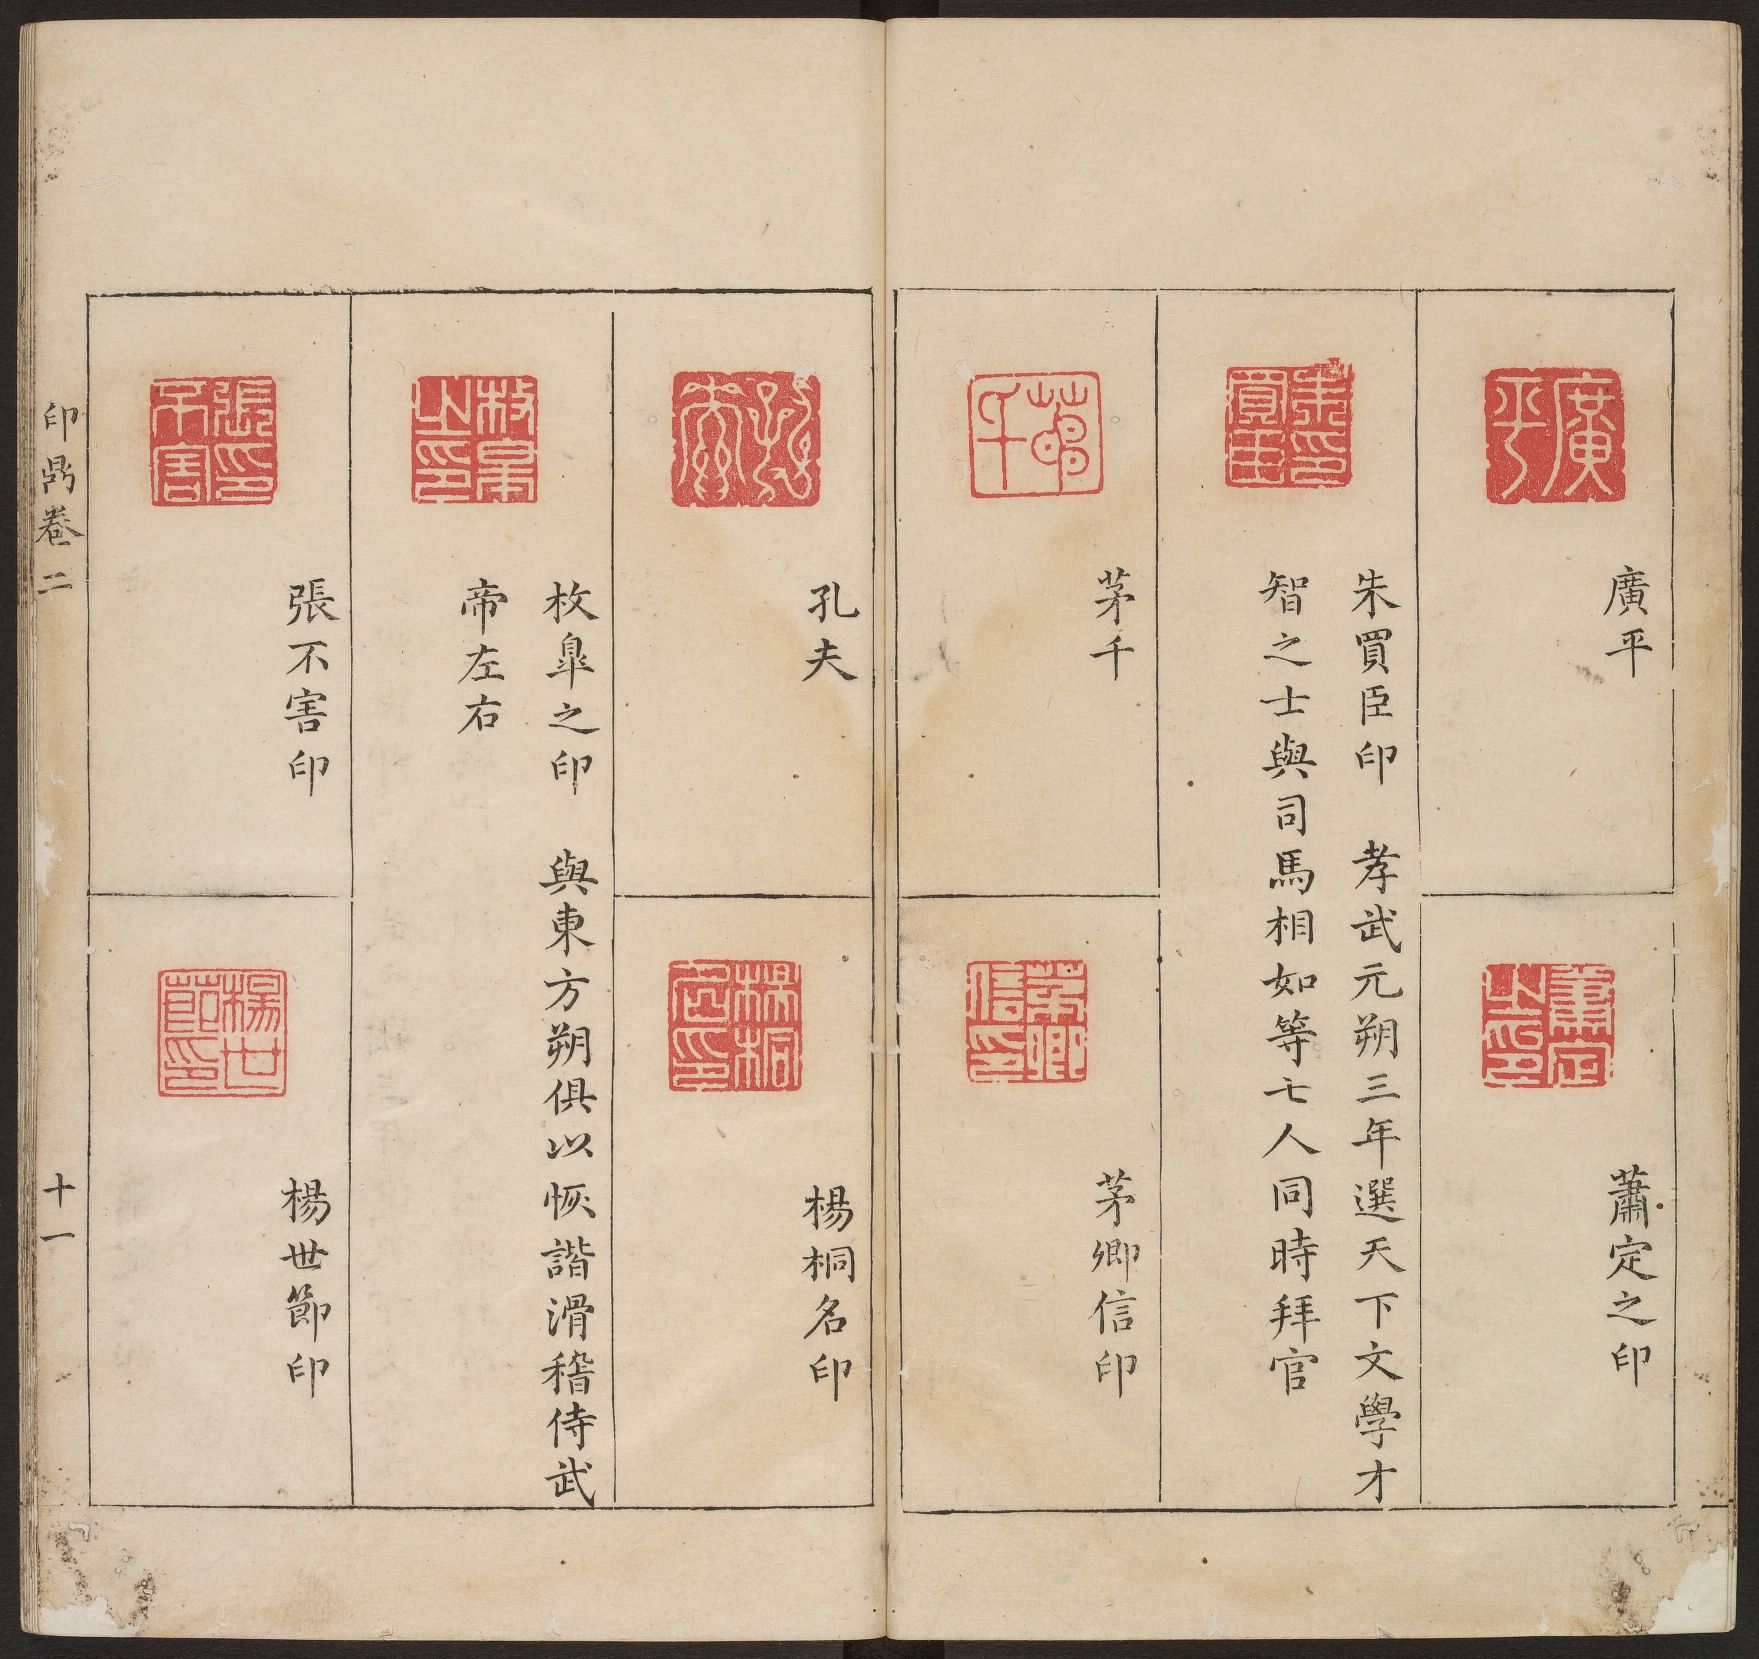 廣平
蕭定之印
朱買臣印　孝武元朔三年選天下文學才
智之士與司馬相如等七人同時拜官
茅千
茅卿信印
孔夫
楊桐名印
枚皐之印　與東方朔俱以恢諧滑稽侍武
帝左右
張不害印
楊世節印
印鼎卷二
十一